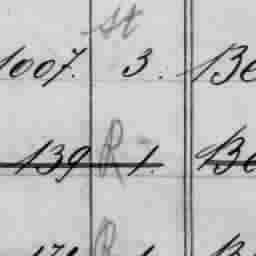 St
1007. 3. Be
139 R 1. Be
R